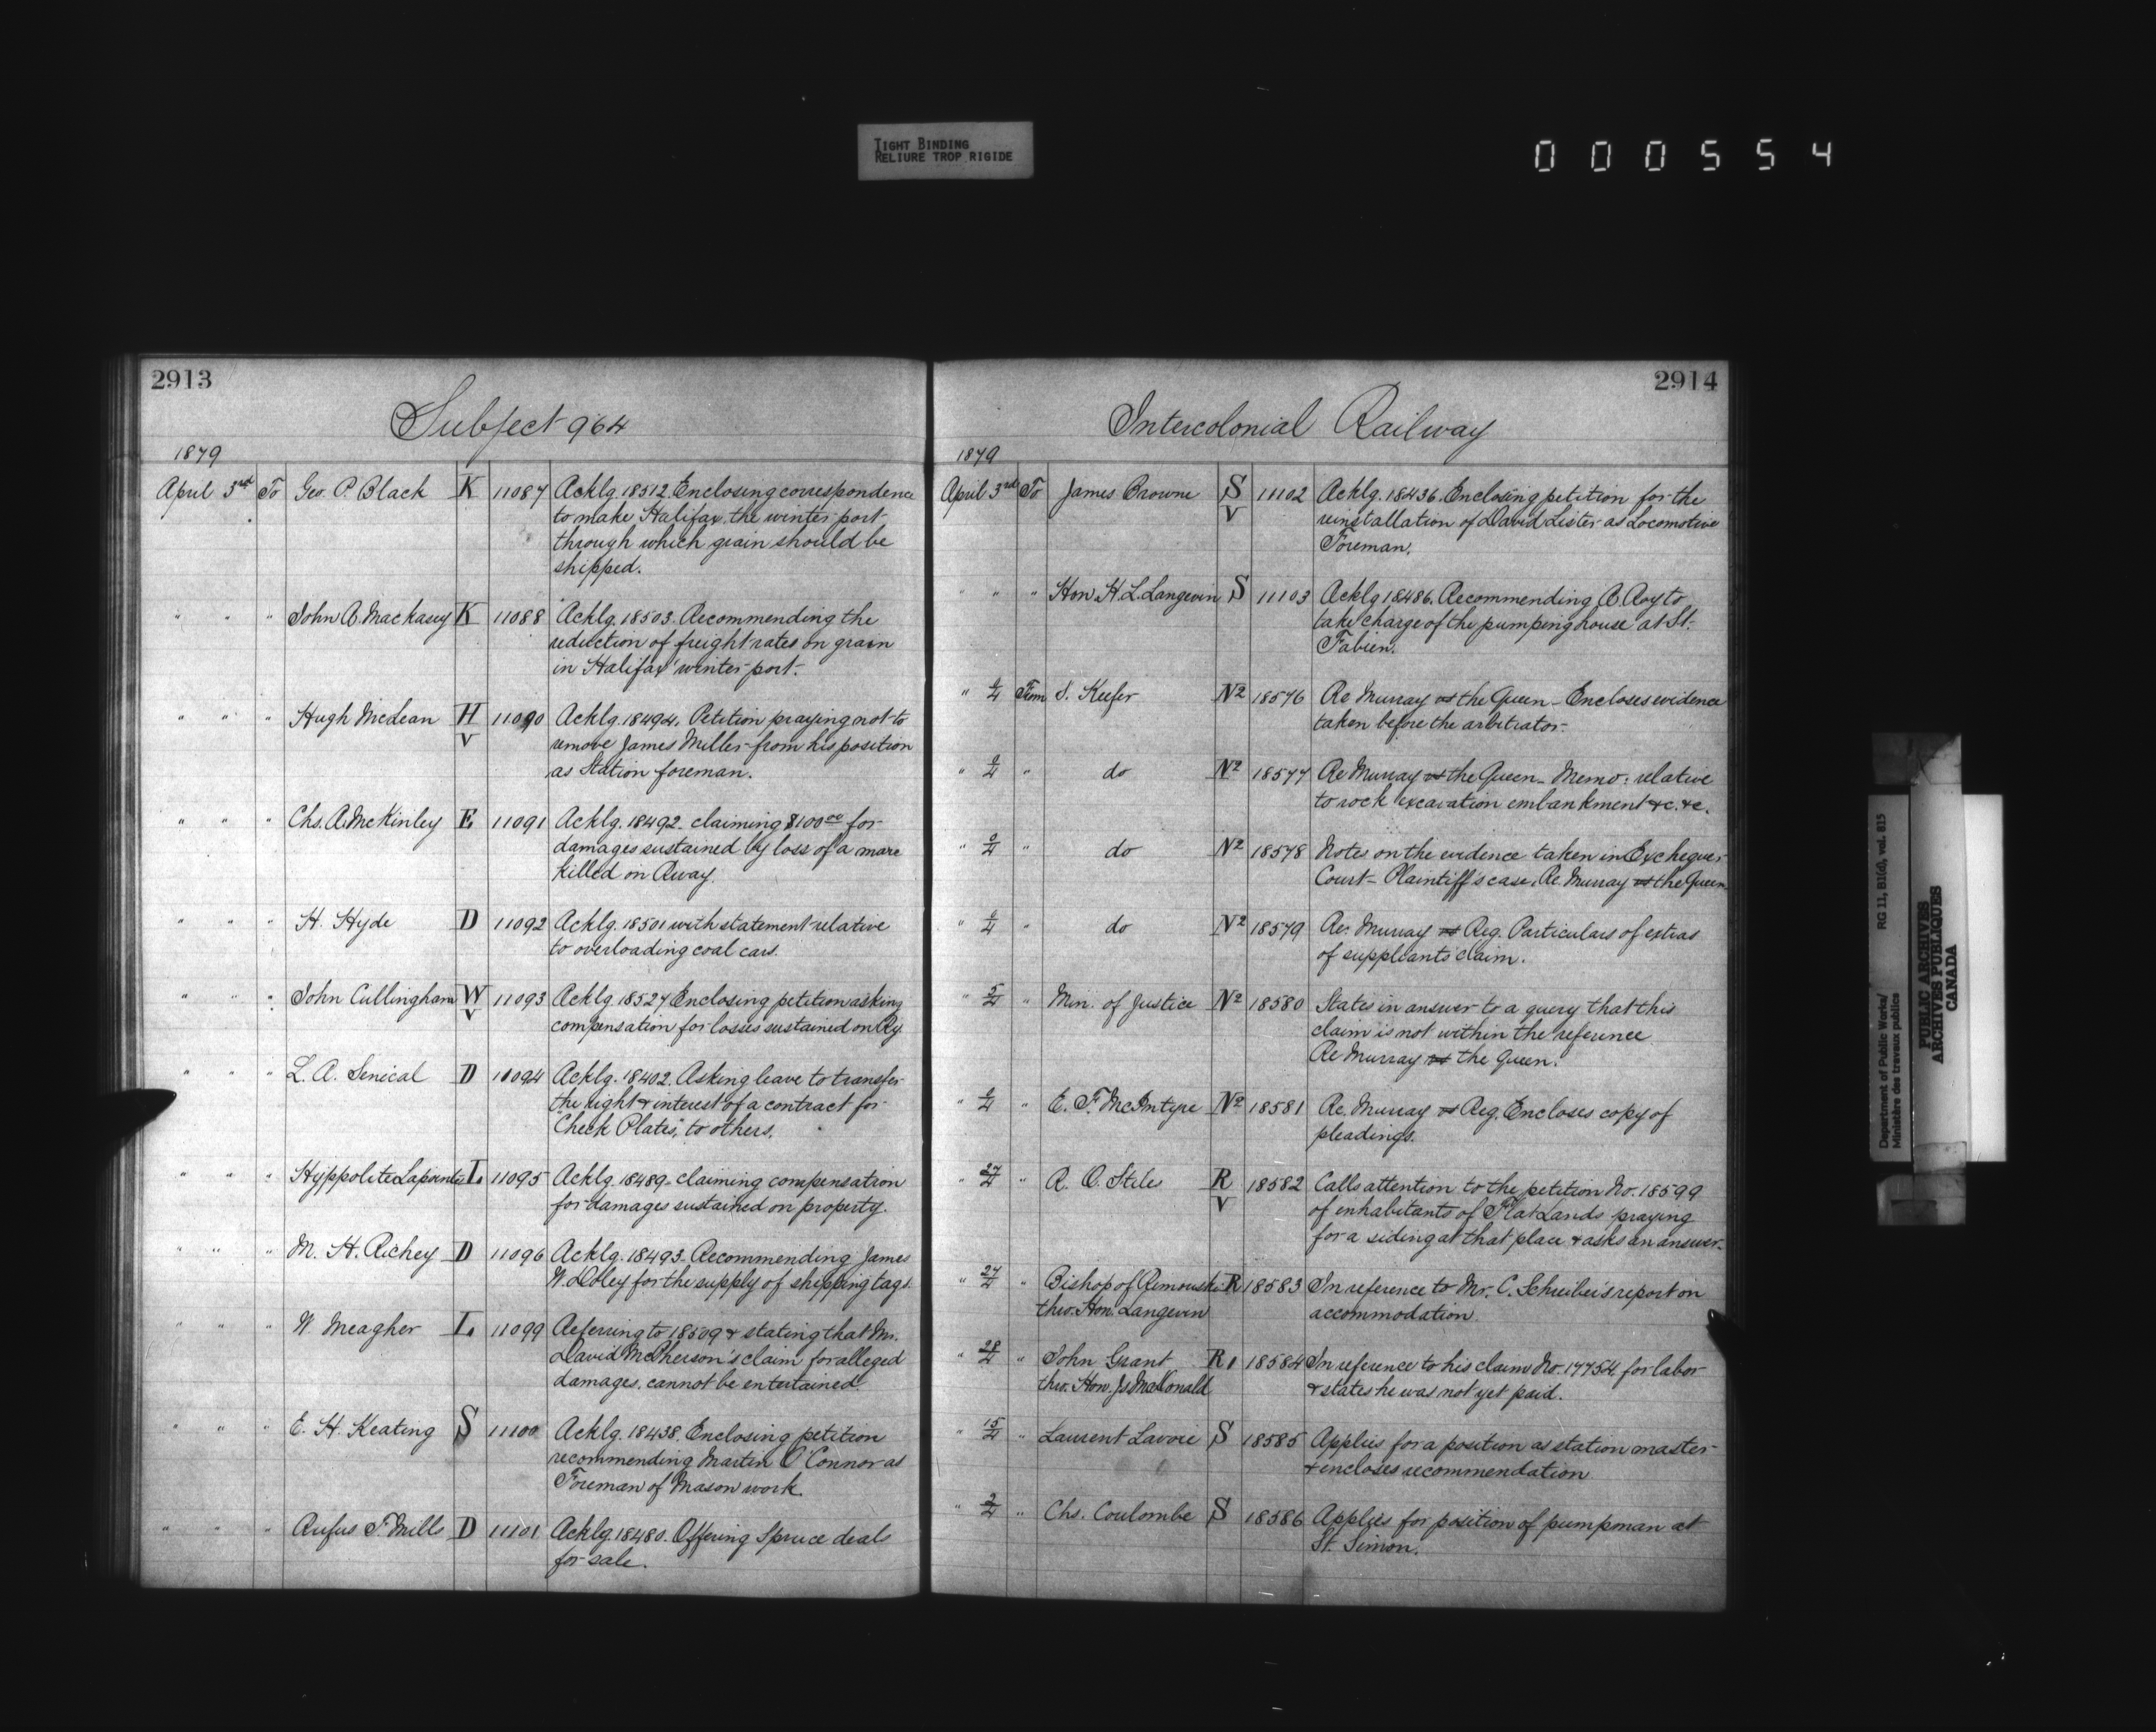 TIGHT BINDING
RELIURE TROP RIGIDE
000554
2913
Subject 964
1879
April 3rd To Geo. P. Black K 11087 Acklg. 18512. Enclosing correspondence
to make Halifax the winter port
through which grain should be
shipped.
" " " John A. Mackasey K 11088 Acklg. 18503. Recommending the
reduction of freight rates on grain
in Halifax winter port.
" " " Hugh McLean H V 11090 Acklg. 18494. Petition praying not to
remove James Miller from his position
as Station foreman.
" " " Chs. A. McKinley E 11091 Acklg. 18492. claiming $100.00 for
damages sustained by loss of a mare
killed on Rway.
" " " H. Hyde D 11092 Acklg. 18501 with statement relative
to overloading coal cars.
" " " John Cullingham W V 11093 Acklg. 18527 Enclosing petition asking
compensation for losses sustained on Ry
" " " L. A. Senécal D 11094 Acklg. 18402. Asking leave to transfer
the right & interest of a contract for
"Check Plates," to others.
" " " Hyppolite Lapointe L. 11095 Acklg. 18489. claiming compensation
for damages sustained on property.
" " " M. H. Richey D 11096 Acklg. 18493. Recommending James
W. Doley for the supply of shipping tags.
" " " W. Meagher L. 11099 Referring to 18509 & stating that Mr.
David McPherson's claim for alleged
damages, cannot be entertained
" " " E. H. Keating S 11100 Acklg. 18438. Enclosing petition
recommending Martin O'Connor as
Foreman of Mason work.
" " " Rufus F. Mills D 11101 Acklg. 18480. Offering Spruce deals
for sale.
2914
Intercolonial Railway
1879
April 3rd To James Browne S V 11102 Acklg. 18436. Enclosing petition for the
reinstallation of David Lister as Locomotive
Foreman.
" " " Hon. H. L. Langevin S 11103 Acklg 18486. Recommending A. Roy to
take charge of the pumping house at St.
Fabien.
" From S. Keefer N2 18576 Re Murray vs the Queen – Encloses evidence
taken before the arbitrator.
" " do N2 18577 Re Murray vs the Queen – Memo: relative
to rock excavation embankment &c. &c.
" " do N2 18578 Notes on the evidence taken in Exchequer
Court – Plaintiff's case. Re Murray vs the Queen
" " do N2 18579 Re. Murray vs Reg. Particulars of extras
of suppliants claim.
" 5/4 " Min. of Justice N2 18580 States in answer to a query that this
claim is not within the reference
Re Murray vs the Queen.
" " E. F. McIntyre N2 18581 Re. Murray vs Reg. Encloses copy of
pleadings.
" 27/4 " R. O. Stiles R V 18582 Calls attention to the petition No. 18599
of inhabitants of Flat Lands praying
for a siding at that place & asks an answer.
" 27/4 " Bishop of Rimouski R 18583 In reference to Mr. C. Schreiber's report on
thro. Hon. Langevin accommodation.
" 28/4 " John Grant R1 18584 In reference to his claim No. 17754, for labor
thro. Hon. Js McDonald & states he was not yet paid.
" 15/4 " Laurent Lavoie S 18585 Applies for a position as station master
& encloses recommendation
" 2/4 " Chs. Coulombe S 18586 Applies for position of pumpman at
St. Simon.
Department of Public Works/ RG 11, B1(d), vol. 815
Ministère des travaux publics
PUBLIC ARCHIVES
ARCHIVES PUBLIQUES
CANADA